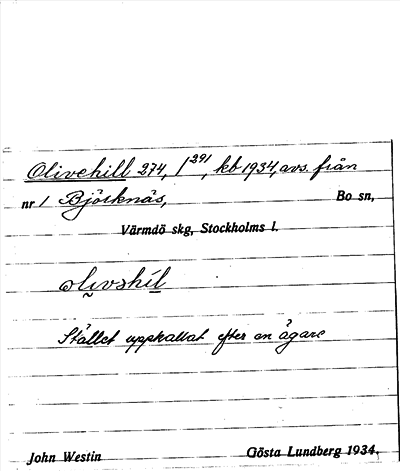 Olivehill 274, 1²⁹¹, kb 1934, avs. från
nr 1 Björknäs, Bo sn,
Värmdö skg, Stockholms l.
olivshil
Stället uppkallat efter en ägare
John Westin Gösta Lundberg 1934.